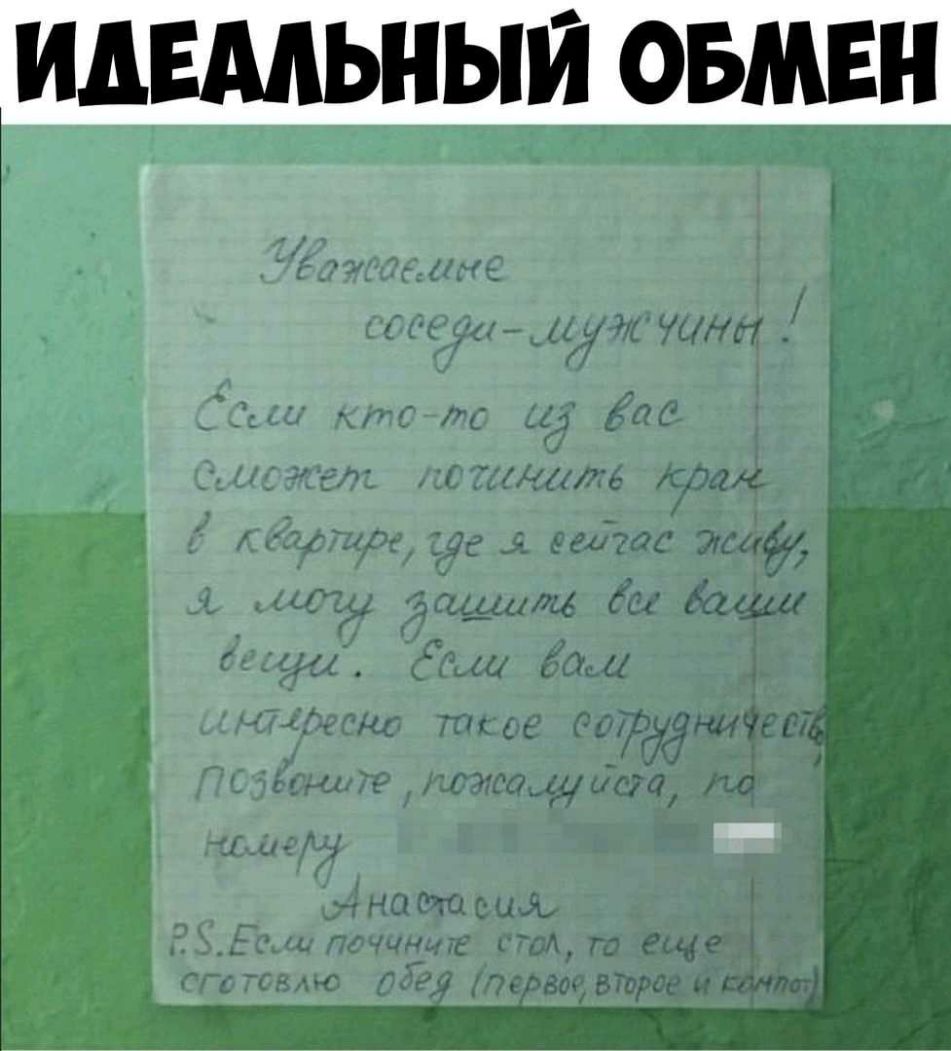 ИДЕАЛЬНЫЙ ОБМЕН
Уважаемые
соседи-мужчины!
Если кто-то из вас
сможет починить кран
в квартире, где я сейчас живу,
я могу зашить все ваши
вещи. Если вам
интересно такое сотрудничеств
позвоните, пожалуйста, по
номеру
Анастасия
P.S. Если почините стол, то еще
сготовлю обед (первое, второе и компот)